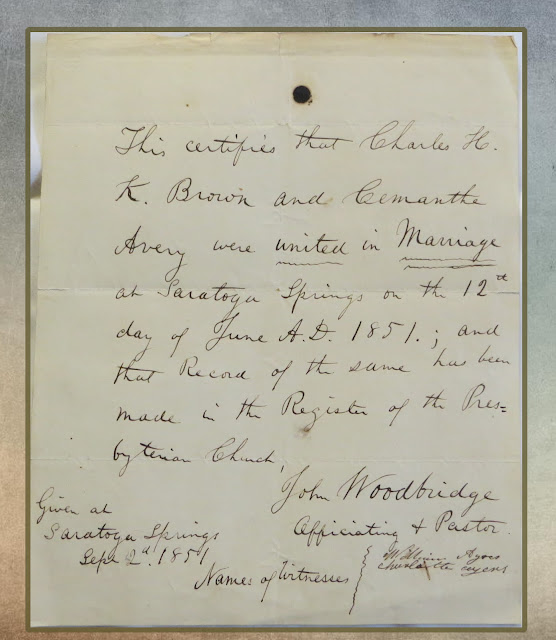 This certifies that Charles H.
K. Brown and Cemanthe
Avery were united in Marriage
at Saratoga Springs on the 12th
day of June A.D. 1851.; and
that Record of the same has been
made in the Register of the Pres=
byterian Church,
John Woodbridge
Officiating & Pastor.
Given at
Saratoga Springs
Sept 2d. 1851
Names of Witnesses
William
Charlotte